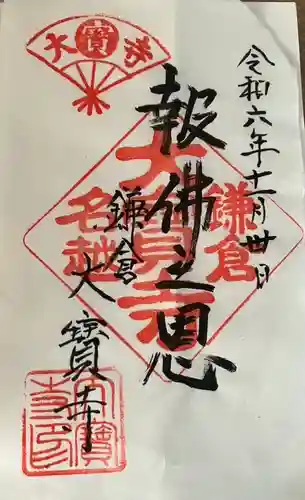 大寶寺
令和六年十一月卅日
報佛之恩
鎌倉
名越
鎌倉
大寶寺